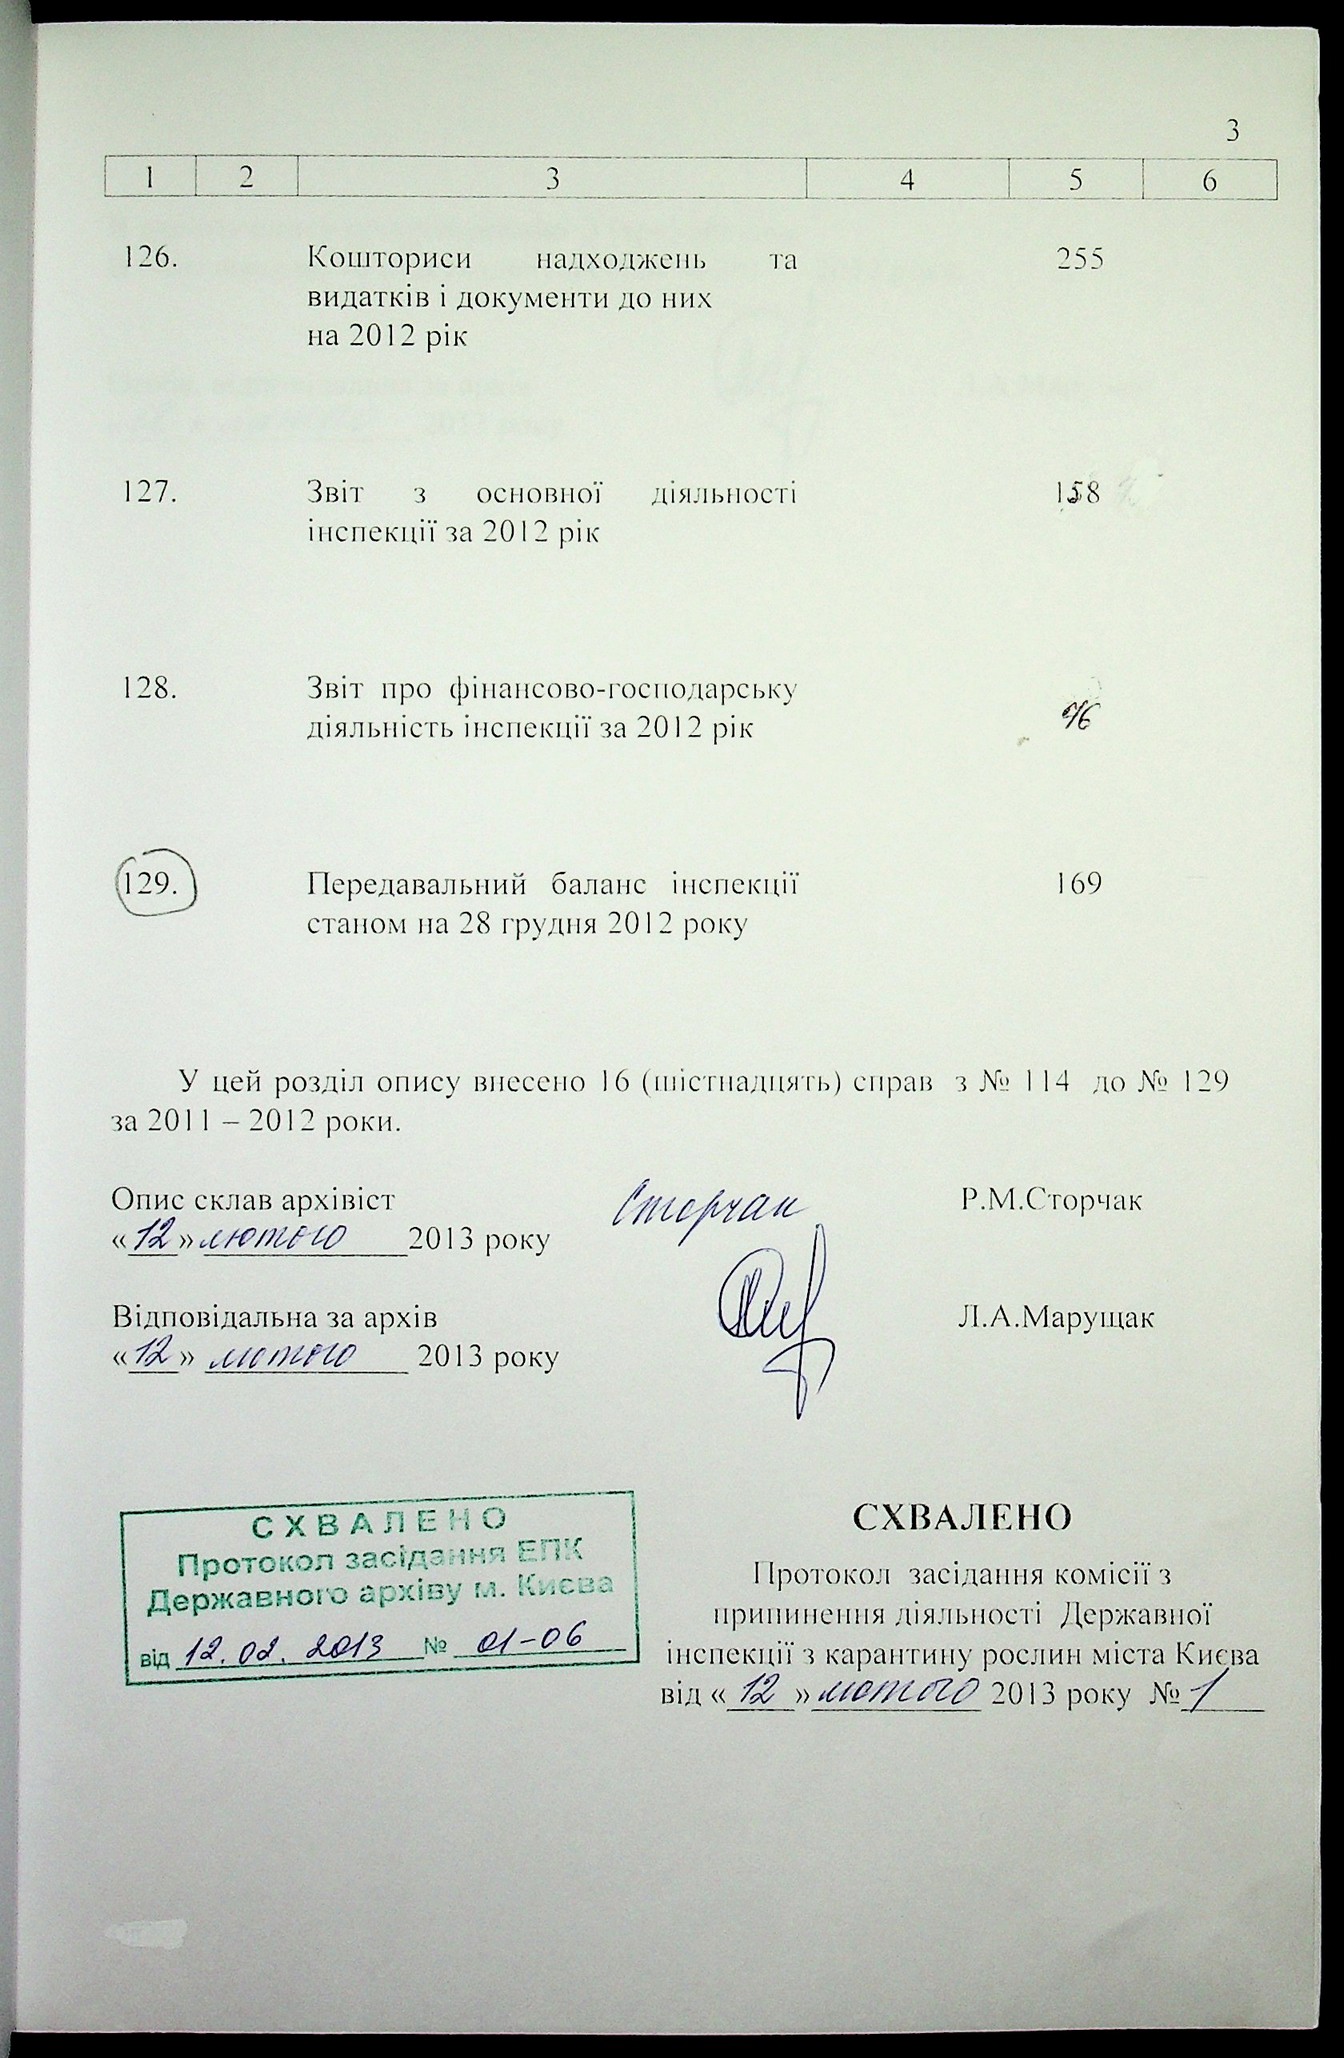 3
1 2 3 4 5 6
126. Кошториси надходжень та 255
видатків і документи до них
на 2012 рік
127. Звіт з основної діяльності 158
інспекції за 2012 рік
128. Звіт про фінансово-господарську
діяльність інспекції за 2012 рік 46
129. Передавальний баланс інспекції 169
станом на 28 грудня 2012 року
У цей розділ опису внесено 16 (шістнадцять) справ з № 114 до № 129
за 2011 – 2012 роки.
Опис склав архівіст Сторчак Р.М.Сторчак
«12» лютого 2013 року
Відповідальна за архів Л.А.Марущак
«12» лютого 2013 року
СХВАЛЕНО
Протокол засідання ЕПК
Державного архіву м. Києва
від 12.02.2013 № 01-06
СХВАЛЕНО
Протокол засідання комісії з
припинення діяльності Державної
інспекції з карантину рослин міста Києва
від «12» лютого 2013 року № 1